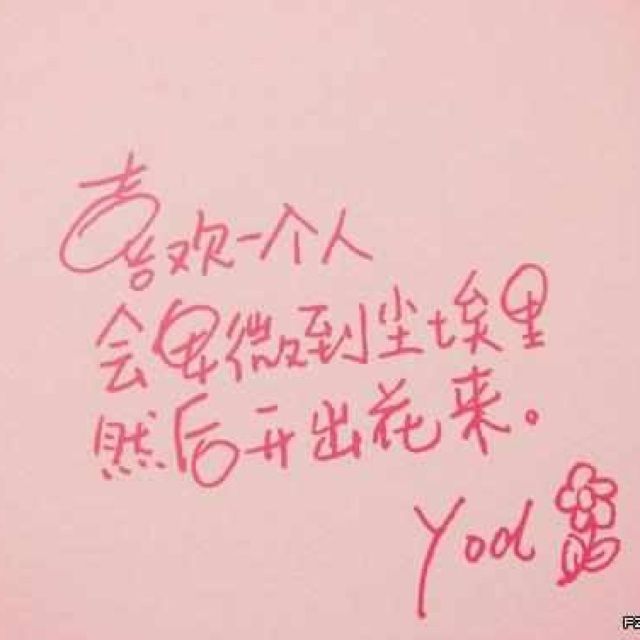 喜欢一个人
会卑微到尘埃里
然后开出花来。
Yod